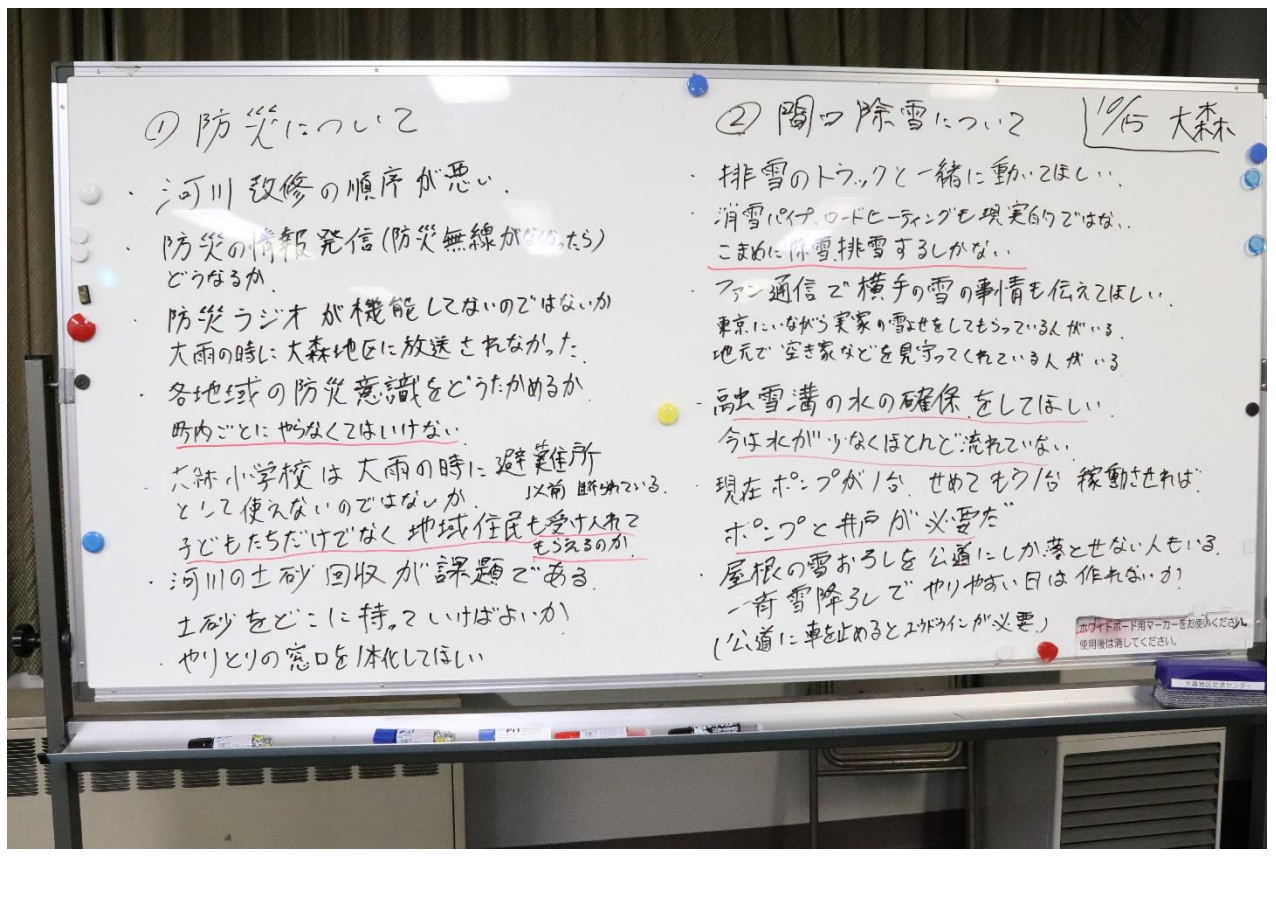 ① 防災について
・河川改修の順序が悪い.
・防災の情報発信(防災無線がなくなったら)
どうなるか.
・防災ラジオが機能してないのではないか
大雨の時に大森地区に放送されなかった.
・各地域の防災意識をどうたかめるか
町内ごとにやらなくてはいけない.
・大森小学校は大雨の時に避難所
として使えないのではないか 以前断られている.
子どもたちだけでなく地域住民も受け入れて
もらえるのか.
・河川の土砂回収が課題である.
土砂をどこに持っていけばよいか
・やりとりの窓口を1本化してほしい
② 間口除雪について
10/15 大森
・排雪のトラックと一緒に動いてほしい.
・消雪パイプ、ロードヒーティングも現実的ではない.
こまめに除雪.排雪するしかない
・ファン通信で横手の雪の事情も伝えてほしい.
東京にいながら実家の雪よせをしてもらっている人がいる.
地元で空き家などを見守ってくれている人がいる
・融雪溝の水の確保をしてほしい.
今は水が少なくほとんど流れていない.
・現在ポンプが1台.せめてもう1台稼動させれば.
ポンプと井戸が必要だ
・屋根の雪おろしを公道にしか落とせない人もいる.
一斉雪降ろしでやりやすい日は作れないか
(公道に車を止めるとユウドウインが必要)
ホワイトボード用マーカーをお使いください。
使用後は消してください。
大森地区交流センター